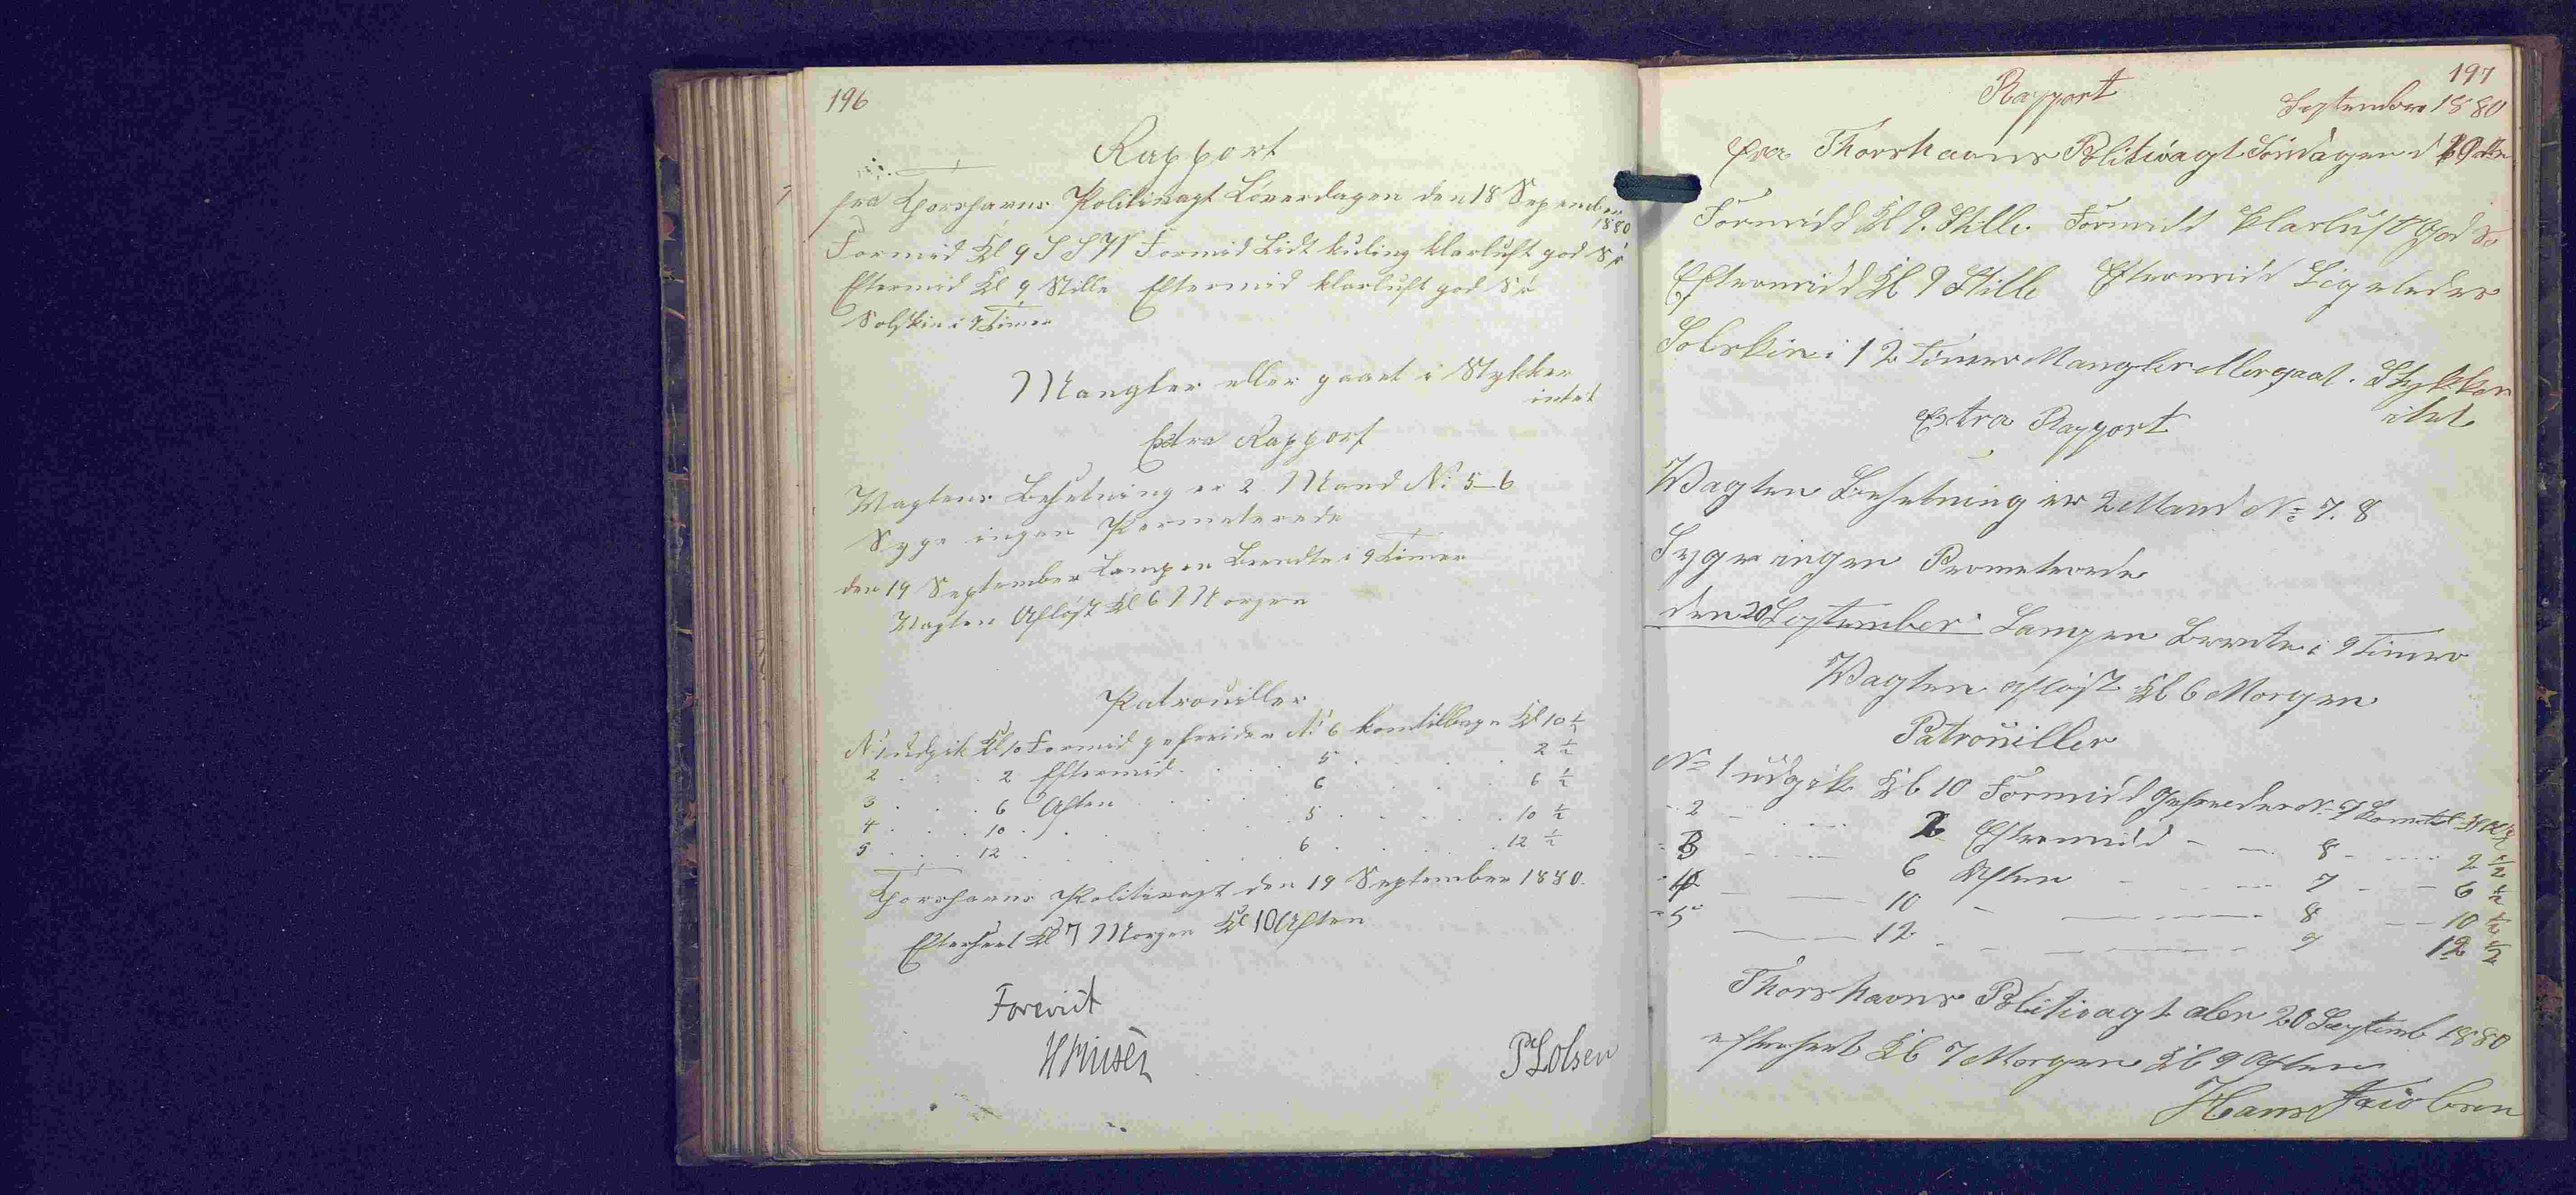 196
Rapport
fra Thorshavns Politivagt Löverdagen den 18 September
1880
Formid Kl 9 S S W Formid Lidt kuling klarluft god Sö
Eftermid Kl 9 Stille Eftermid klarluft god Sö
Solskin i 9 Timer
Mangler eller gaaet i Stykker
intet
Extra Rapport
Vagtens Besetning er 2 Mand No 5-6
Syge ingen Permeterede
den 19 September Lampen Brendte i 9 Timer
Vagten Aflöst Kl 6 Morgen
Patrouiller
No 1 udgik Kl 10 Formid gefreider No 6 kom tilbage Kl 10 1/2
2 . . . 2 Eftermid . . . 5 . . . 2 1/2
3 . . . 6 Aften . . . 6 . . . 6 1/2
4 . . . 10 . . . 5 . . . 10 1/2
5 . . . 12 . . . 6 . . . 12 1/2
Thorshavns Politivagt den 19 September 1880.
Efterseet Kl 7 Morgen Kl 10 Aften
Forevist
P L Olsen
197
Rapport
September 1880
fra Thorshavns Politivagt Söndagen d 19de
Formidd Kl 9. Stille. Formidd klarluft God Sö
Eftermidd Kl 9 Stille Eftermidd Ligeledes
Solskin i 12 Timer Mangler eller gaaet i Stykker
itet
Extra Rapport
Vagten Besetning er 2 Mand No 7. 8
Syge ingen Prometerede
den 20 September Lampen Brente i 9 Timer
Vagten aflöst Kl 6 Morgen
Patrouiller
No 1 udgik Kl 10 Formidd Gefreider No 7 Kom tilb Kl 10 1/2
- 2 - - 2 Eftermidd - - 8 - - 2 1/2
- 3 - - 6 Aften - - 7 - - 6 1/2
- 4 - - 10 - - 8 - - 10 1/2
- 5 - - 12 - - 7 12 1/2
Thorshavns Politivagt den 20 Septemb 1880
efterseet Kl 7 Morgen Kl 9 Aften
Hans Jacobsen